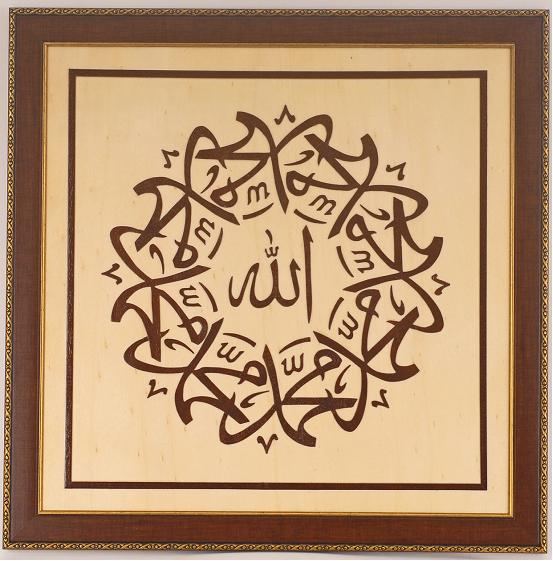 الله
محمد
محمد
محمد
محمد
محمد
محمد
محمد
محمد